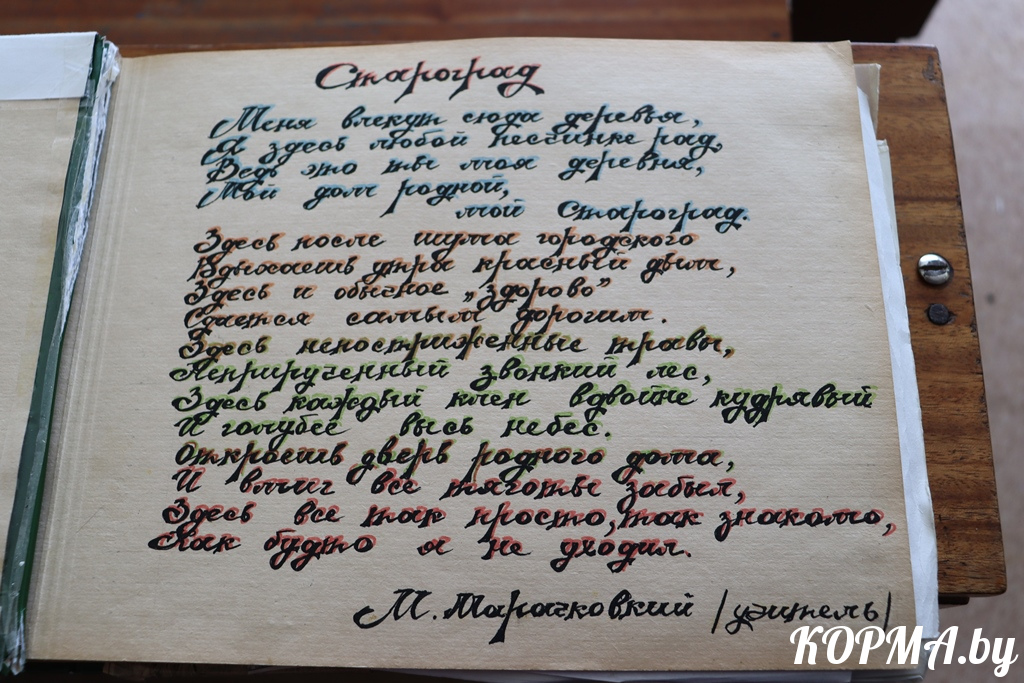 Староград
Меня влекут сюда деревья,
Я здесь любой песчинке рад,
Ведь это ты моя деревня,
Мой дом родной,
мой Староград.
Здесь после шума городского
Вдыхаешь утра красный дым,
Здесь и обычное „здорово”
Сдается самым дорогим.
Здесь непостриженные травы,
Неприрученный звонкий лес,
Здесь каждый клен вдвойне кудрявый
И голубее высь небес.
Откроешь дверь родного дома,
И вмиг все тяготы забыл,
Здесь все так просто, так знакомо,
Как будто я не уходил.
М. Марачковский /учитель/
КОРМА.by